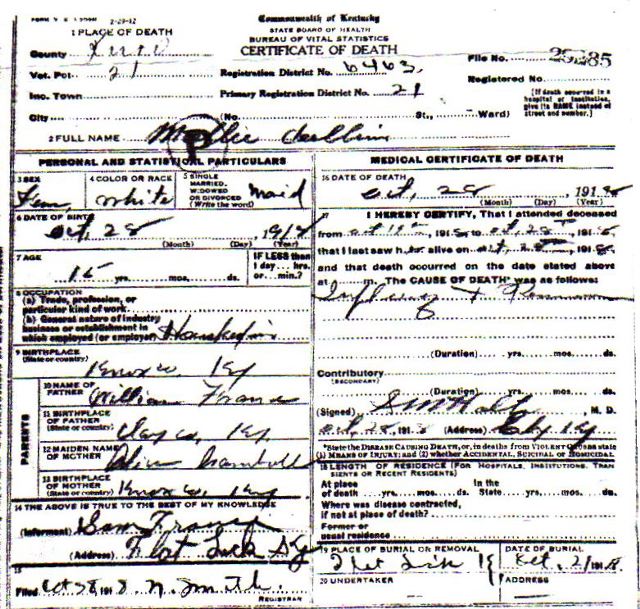 2-29-12
Commonwealth of Kentucky
STATE BOARD OF HEALTH
BUREAU OF VITAL STATISTICS
CERTIFICATE OF DEATH
1 PLACE OF DEATH
County Knox
Vot. Pct 21
Inc. Town
City
Registration District No. 6463
Primary Registration District No. 21
(No. St., Ward)
File No. 
Registered No.
[If death occurred in a hospital or institution, give its NAME instead of street and number.]
2 FULL NAME Mollie
PERSONAL AND STATISTICAL PARTICULARS
3 SEX
Fem
4 COLOR OR RACE
white
5 SINGLE
MARRIED,
WIDOWED
OR DIVORCED
(Write the word)
Maid
6 DATE OF BIRTH
Oct, 28 191
(Month) (Day) (Year)
7 AGE
15 yrs. mos. ds.
IF LESS than
1 day... hrs.
or... min.?
8 OCCUPATION
(a) Trade, profession, or
particular kind of work
(b) General nature of industry
business or establishment in
which employed (or employer)
9 BIRTHPLACE
(State or country)
Knox co, Ky
PARENTS
10 NAME OF
FATHER
William
11 BIRTHPLACE
OF FATHER
(State or country)
Clay co, Ky
12 MAIDEN NAME
OF MOTHER
13 BIRTHPLACE
OF MOTHER
(State or country)
Knox co, Ky
14 THE ABOVE IS TRUE TO THE BEST OF MY KNOWLEDGE
(Informant) Sam
(Address) Flat Lick Ky
15
Filed Oct 28 191 N. Smith
REGISTRAR
MEDICAL CERTIFICATE OF DEATH
16 DATE OF DEATH
Oct, 28, 1918
(Month) (Day) (Year)
17 I HEREBY CERTIFY, That I attended deceased
from Oct 191 to Oct, 28 191
that I last saw h alive on Oct, 191
and that death occurred on the date stated above
at m. The CAUSE OF DEATH* was as follows:
(Duration) yrs. mos. ds.
Contributory
(SECONDARY)
(Duration) yrs. mos. ds.
(Signed) M. D.
Oct, 28, 191 (Address) Ky
*State the DISEASE CAUSING DEATH, or, in deaths from VIOLENT CAUSES state
(1) MEANS OF INJURY; and (2) whether ACCIDENTAL, SUICIDAL or HOMICIDAL
18 LENGTH OF RESIDENCE (FOR HOSPITALS, INSTITUTIONS, TRAN
SIENTS OR RECENT RESIDENTS)
At place
of death yrs. mos. ds.
In the
State yrs. mos. ds.
Where was disease contracted,
if not at place of death?
Former or
usual residence
19 PLACE OF BURIAL OR REMOVAL
Flat Lick Ky
DATE OF BURIAL
Oct, 191
20 UNDERTAKER
ADDRESS